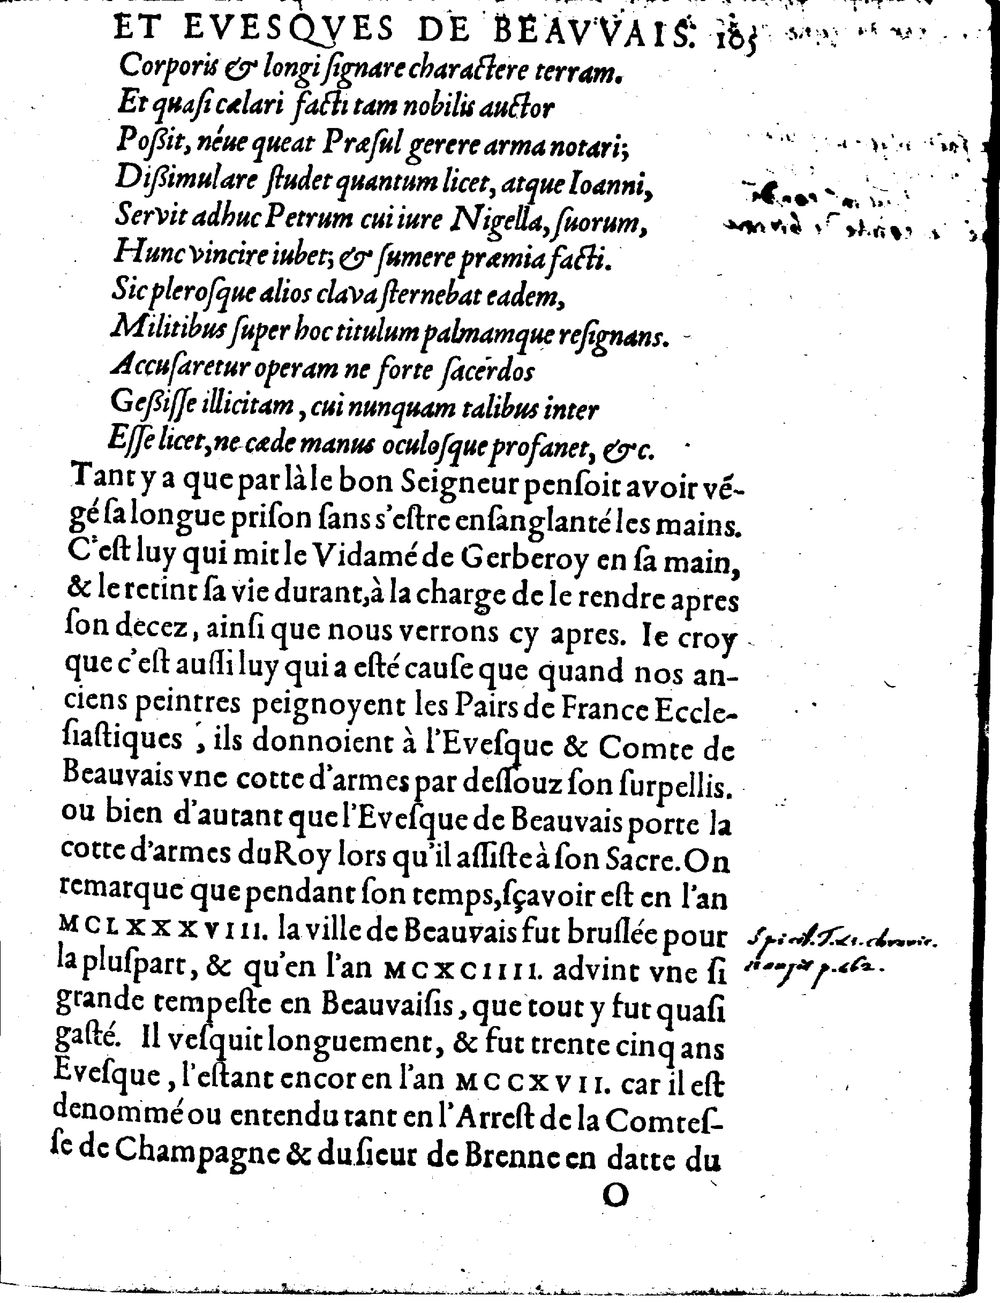 ET EVESQVES DE BEAVVAIS. 105
Corporis & longi ſignare charactere terram.
Et quaſi cælari facti tam nobilis auctor
Poßit, néue queat Præſul gerere arma notari;
Dißimulare ſtudet quantum licet, atque Ioanni,
Servit adhuc Petrum cui iure Nigella, ſuorum,
Hunc vincire iubet; & ſumere præmia facti.
Sic pleroſque alios clava ſternebat eadem,
Militibus ſuper hoc titulum palmamque reſignans.
Accuſaretur operam ne forte ſacérdos
Geßiſſe illicitam, cui nunquam talibus inter
Eſſe licet, ne cæde manus oculoſque profanet, &c.
Tant y a que par là le bon Seigneur penſoit avoir vẽ-
gé ſa longue priſon ſans s'eſtre enſanglanté les mains.
C'eſt luy qui mit le Vidamé de Gerberoy en ſa main,
& le retint ſa vie durant, à la charge de le rendre apres
ſon decez, ainſi que nous verrons cy apres. Ie croy
que c'eſt auſſi luy qui a eſté cauſe que quand nos an-
ciens peintres peignoyent les Pairs de France Eccle-
ſiaſtiques, ils donnoient à l'Eveſque & Comte de
Beauvais vne cotte d'armes par deſſouz ſon ſurpellis.
ou bien d'autant que l'Eveſque de Beauvais porte la
cotte d'armes du Roy lors qu'il aſſiſte à ſon Sacre. On
remarque que pendant ſon temps, ſçavoir eſt en l'an
MCLXXXVIII. la ville de Beauvais fut bruſlée pour
la pluſpart, & qu'en l'an MCXCIIII. advint vne ſi
grande tempeſte en Beauvaiſis, que tout y fut quaſi
gaſté. Il veſquit longuement, & fut trente cinq ans
Eveſque, l'eſtant encor en l'an MCCXVII. car il eſt
denommé ou entendu tant en l'Arreſt de la Comteſ-
ſe de Champagne & du ſieur de Brenne en datte du
O
Spicil. T. 
p. 462.